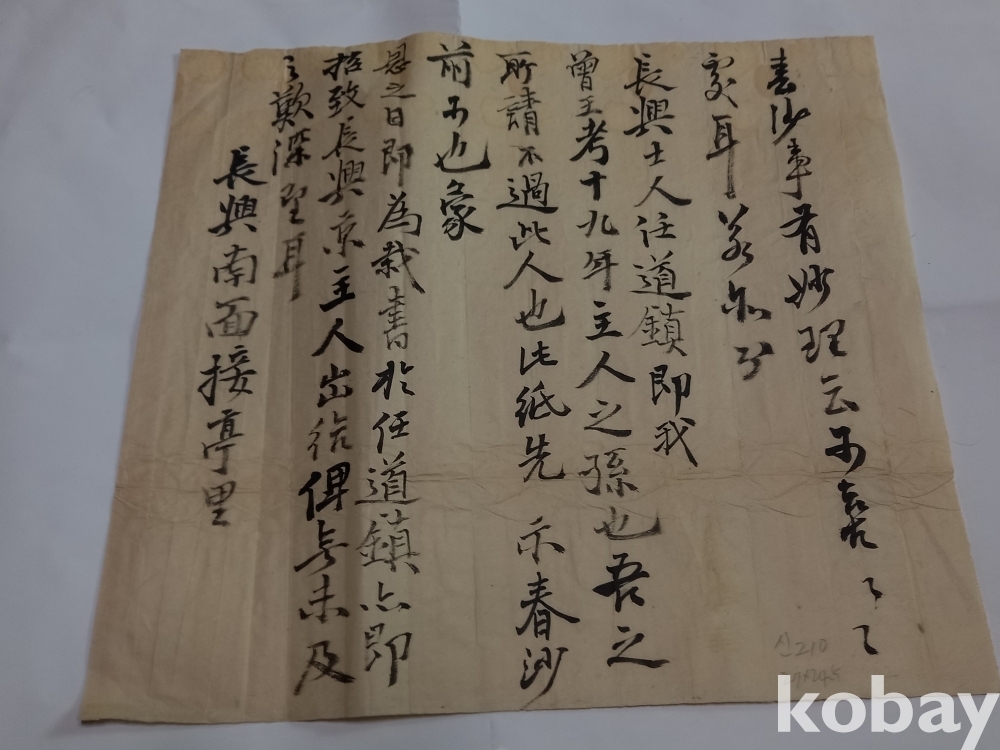 春沙事有妙理云可喜〻〻
處耳
長興士人任道鎮即我
曾王考十九年主人之孫也吾之
所請不過此人也此紙先 示春沙
前可也蒙
惠之日即為裁書於任道鎮亦即
招致長興京主人出給俾無未及
之歎深望耳
長興南面接亭里
신210
kobay